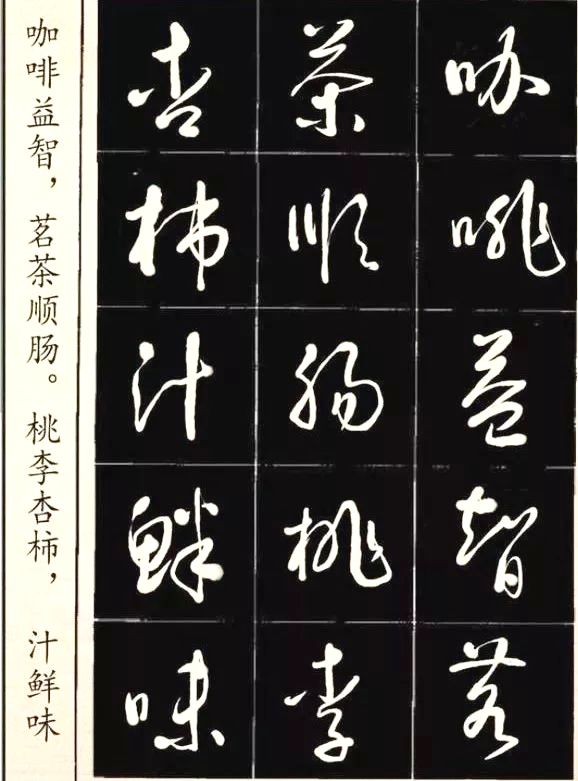 咖啡益智，茗茶顺肠。桃李杏柿，汁鲜味
咖啡益智茗
茶顺肠桃李
杏柿汁鲜味